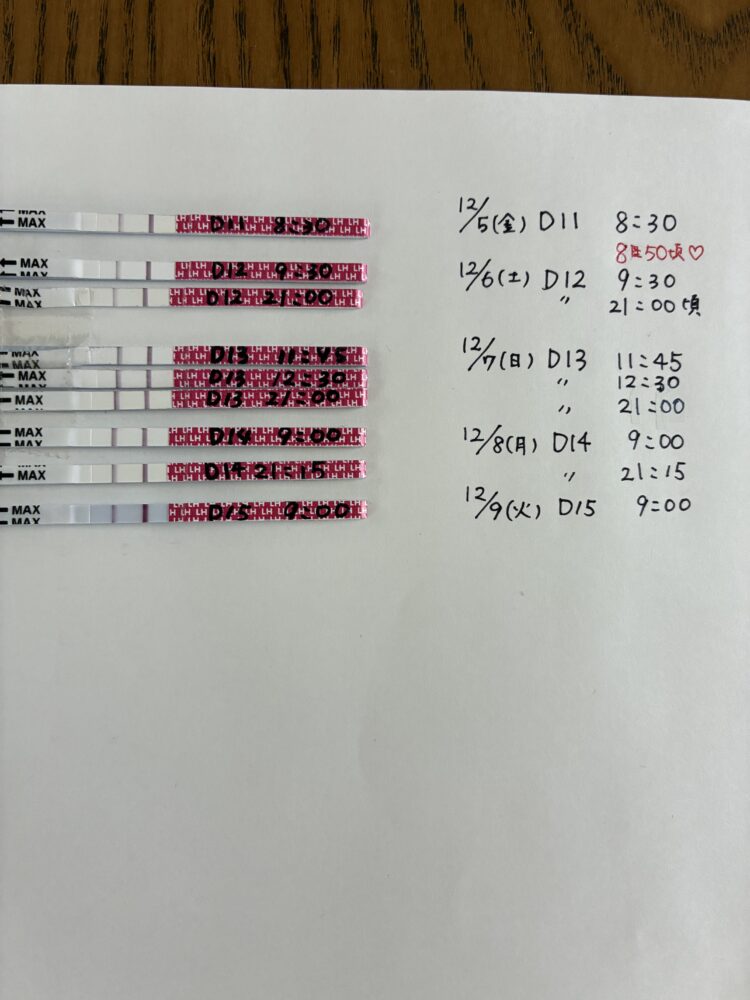 MAX
MAX D11 8:30
MAX D12 9:30
MAX
MAX D12 21:00
MAX
MAX D13 11:45
MAX D13 12:30
MAX
MAX D13 21:00
MAX D14 9:00
MAX
MAX D14 21:15
MAX D15 9:00
MAX
12/5(金) D11 8:30
8時50頃♡
12/6(土) D12 9:30
〃 21:00頃
12/7(日) D13 11:45
〃 12:30
〃 21:00
12/8(月) D14 9:00
〃 21:15
12/9(火) D15 9:00